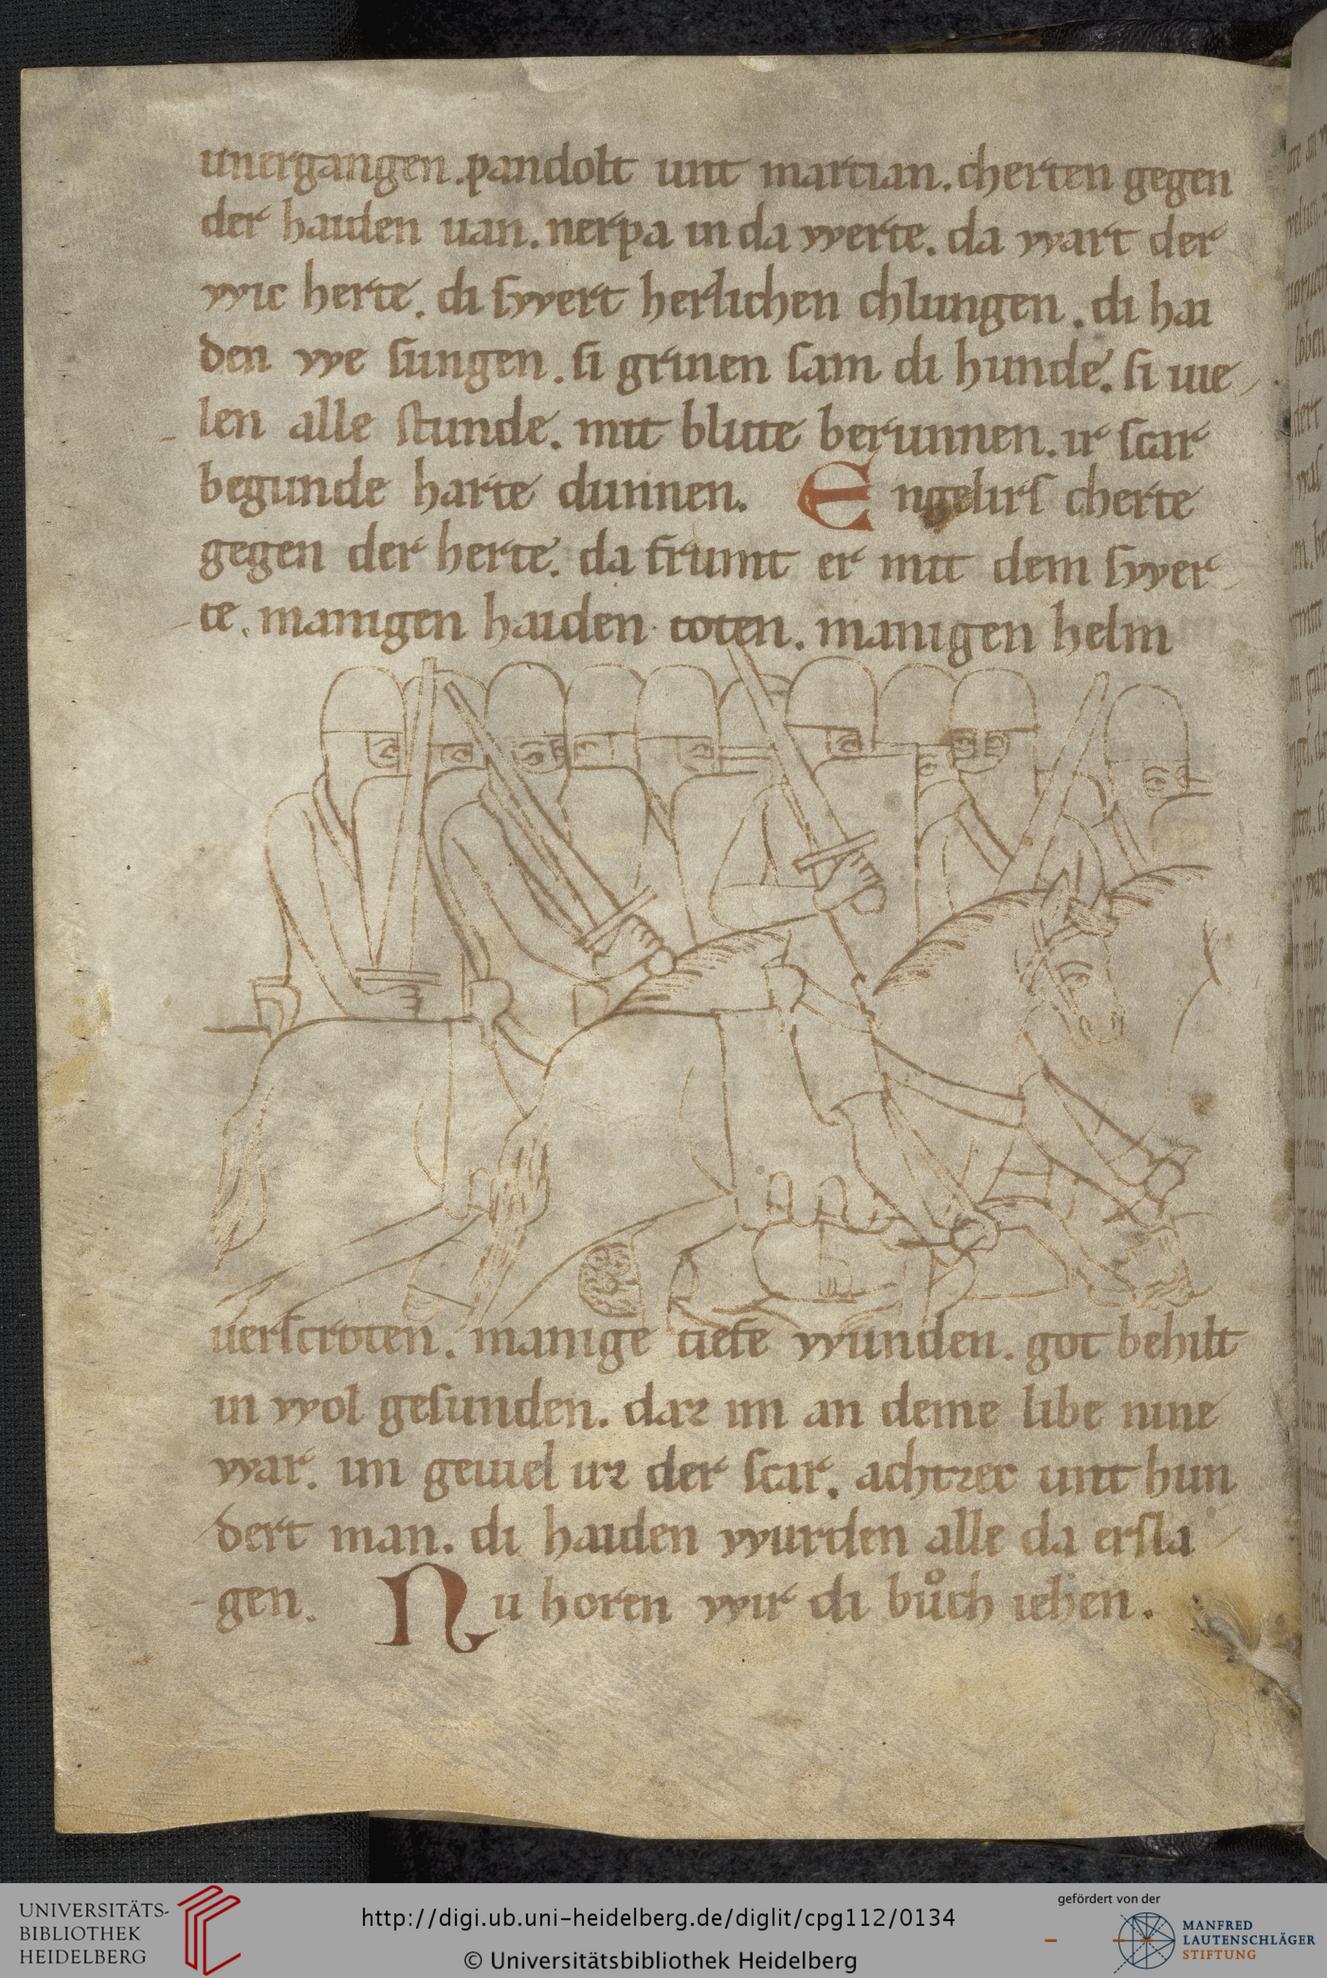 unergangen. pandolt unt martian. cherten gegen
der haiden uan. nerpa in da werte. da wart der
wic herte. di ſwert herlichen chlungen. di hai
den we ſungen. ſi grinen ſam di hunde. ſi uie
len alle ſtunde. mit blute berunnen. ir ſcar
begunde harte dunnen. Engelirſ cherte
gegen der herte. da frumt er mit dem ſwer
te. manigen haiden toten. manigen helm
uerſcroten. manige tiefe wunden. got behilt
in wol geſunden. daz im an deme libe nine
war. im geuiel uz der ſcar. achtzec unt hun
dert man. di haiden wurden alle da erſla
gen. Nu horen wir di buͦch iehen.
UNIVERSITÄTS-
BIBLIOTHEK
HEIDELBERG
http://digi.ub.uni-heidelberg.de/diglit/cpg112/0134
© Universitätsbibliothek Heidelberg
gefördert von der
MANFRED
LAUTENSCHLÄGER
STIFTUNG